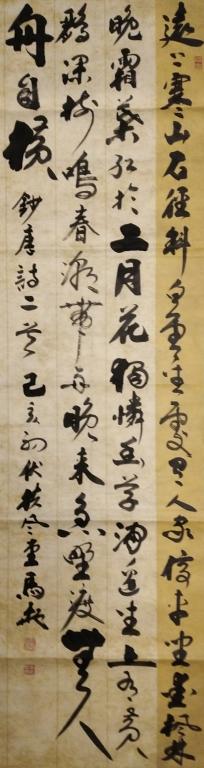 遠上寒山石徑斜白雲生處有人家停車坐愛楓林
晚霜葉紅於二月花獨憐幽草澗邊生上有黃
鸝深樹鳴春潮帶雨晚來急野渡無人
舟自橫 鈔唐詩二首 己亥初伏扶風堂馬